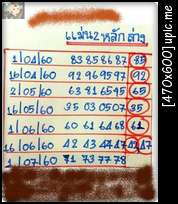 แม่น2หลักล่าง
1/04/60 83 85 86 87 85
16/04/60 92 96 95 97 92
2/05/60 63 61 65 95 65
16/05/60 35 03 05 07 35
1/06/60 60 61 64 68 61
16/06/60 42 43 47 47
1/07/60 71 73 77 78
[470x600]upic.me